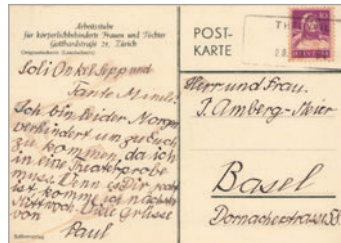 Arbeitsstube
für körperlichbehinderte Frauen und Töchter
Gotthardstraße 21, Zürich
POST-
KARTE
HELVETIA
Soli Onkel Sepp und
Tante
Ich bin leider Morgen
verhindert um zu Euch
zu kommen, da ich
in eine Theaterprobe
muss. Wenn es Dir recht
ist komme ich nächsten
Mittwoch. Viele Grüsse
von
Paul
Herr und Frau.
J. Amberg-
Basel
Dornacherstrasse